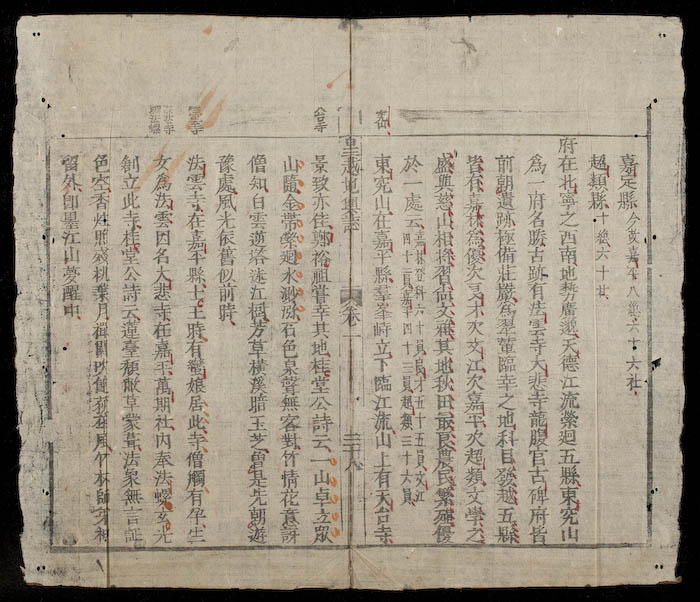 嘉定縣今改嘉平八總六十六社
超類縣十總六十廿
府在北寧之西南地勢廣邈天德江流縈迴五縣東究山
為一府名勝古跡有法雲寺大悲寺龍腹官古碑府皆
前朝遺跡極備莊嚴為翠華臨幸之地科目發越五縣
皆有嘉林為優次良才次文江次嘉平次超類文學之
盛與慈山相將習尚文雅其地秋田最良農民繁殖優
於一處云嘉林登科六十員良才五十五員文江
四十二員嘉平四十三員超類三十六員
東究山在嘉平縣羣峯峙立下臨江流山上有天台寺
皇越地輿誌 卷一 三十八
景致亦佳鄭裕祖嘗幸其地桂堂公詩云一山卓立眾
山隨金帶縈迴水激涯石色泉聲無客對竹情花意訝
僧知白雲遶塔迷江樹芳草橫溪暗玉芝曾是先朝遊
豫處風光依舊似前時
法雲寺在嘉平縣士王時有蠻娘居此寺僧觸有孕生
女為法雲因名大悲寺在嘉平萬期社內奉法螺玄光
創立此寺桂堂公詩云蓮臺頹敝草蒙茸法象無言証
色空香炷照殘桃葉月禪關吹傾荻花風
留外卽墨江山夢醒中